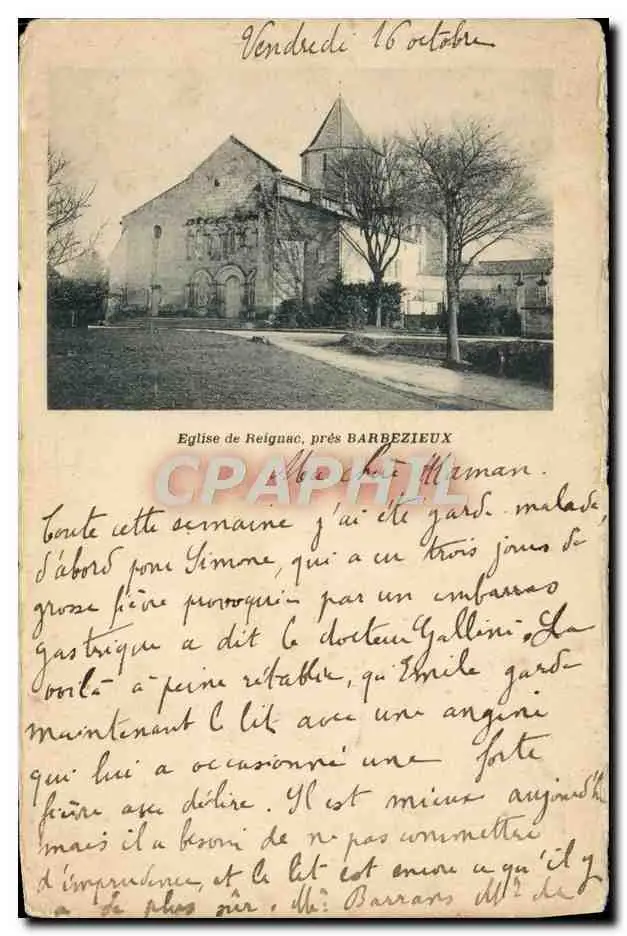 Vendredi 16 octobre
Eglise de Reignac, prés BARBEZIEUX
Ma chère Maman.
CPAPHIL
Toute cette semaine j'ai été garde-malade,
d'abord pour Simone, qui a eu trois jours de
grosse fièvre provoquée par un embarras
gastrique a dit le docteur Gallini. La
voilà à peine rétablie, qu'Emile garde
maintenant le lit avec une angine
qui lui a occasionné une forte
fièvre avec délire. Il est mieux aujourd'h
mais il a besoin de ne pas commettre
d'imprudence, et le lit est encore ce qu'il y
a de plus sûr. Mr Barrans Mr de